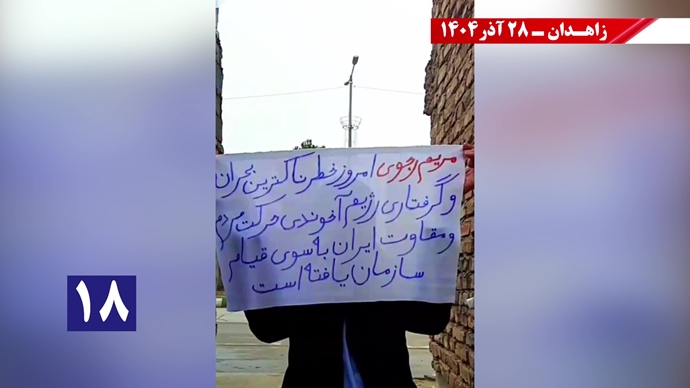 زاهـدان ــ ۲۸ آذر ۱۴۰۴
مریم رجوی امروز خطرناکترین بحران
و گرفتاری رژیم آخوندی حرکت مردم
و مقاومت ایران به سوی قیام
سازمان یافته است
۱۸